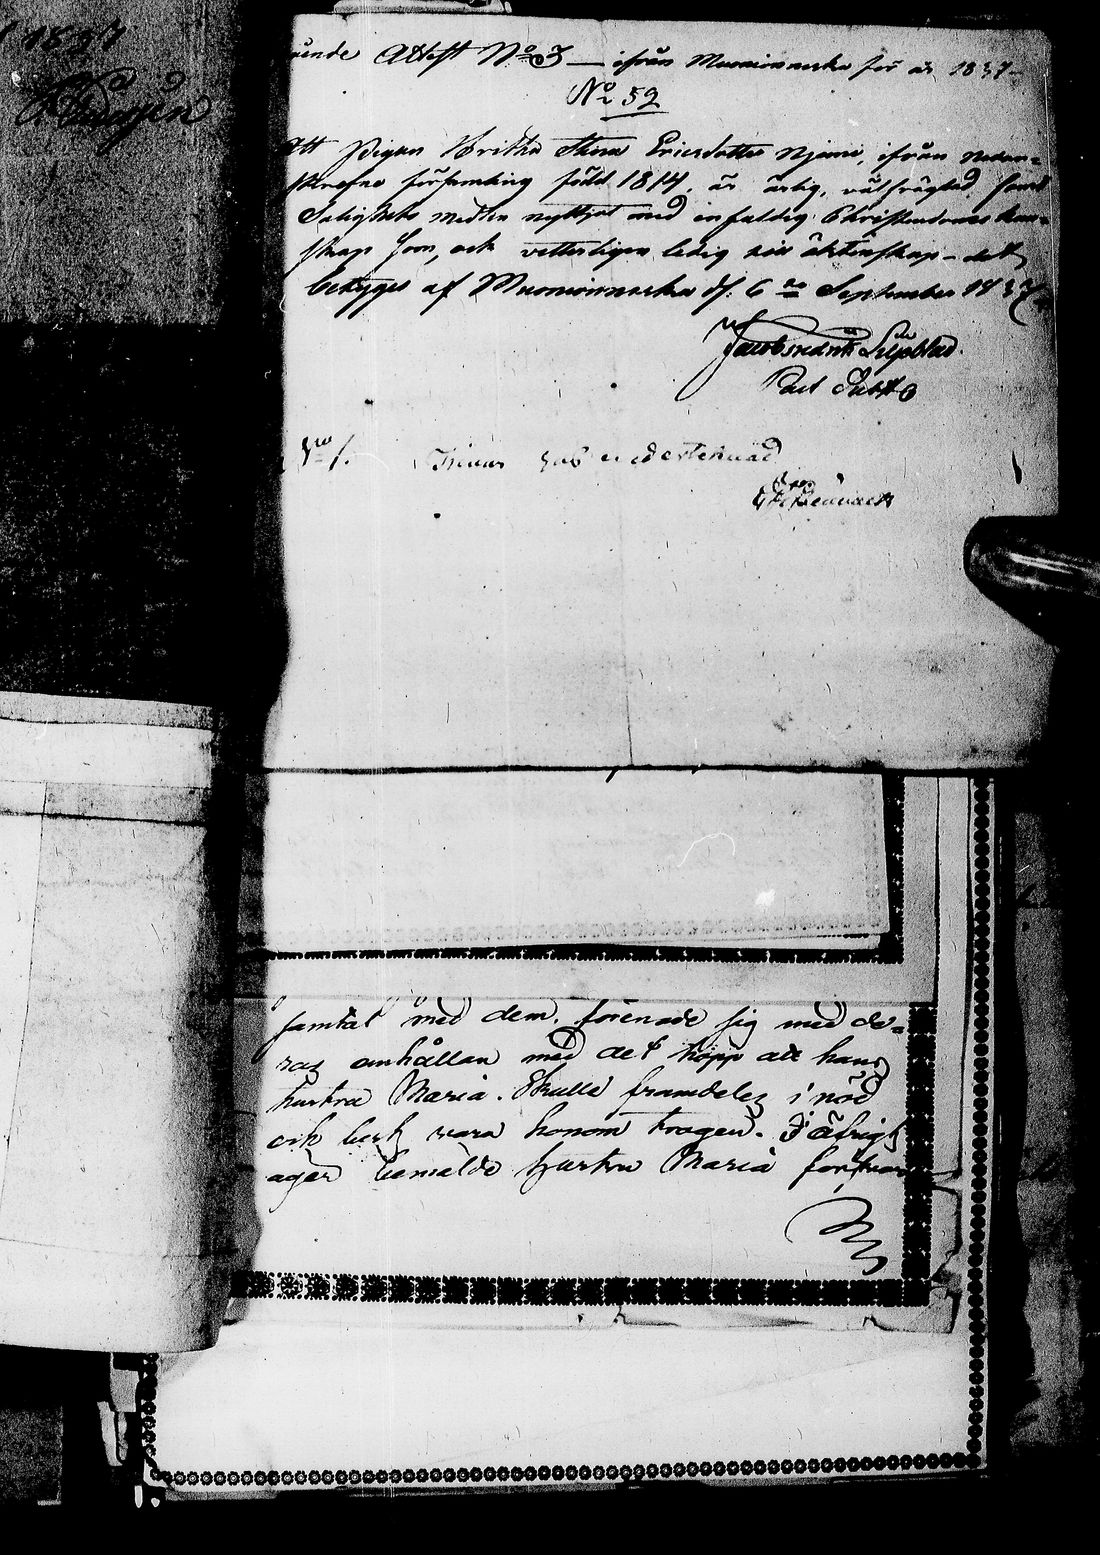 1837
ående Attest No 3 — ifrån Muonionniska för år 1837
No 52
Att Pigan Britha Stina Ericsdotter Njemi, ifrån nedan-
skrefne församling född 1814, är ärlig, välfrägdad, samt
Salighets medlen nyttjat med enfaldig Christendoms kun-
skap som, och vetterligen ledig till äktenskap – det
betyges af Muonionniska d. 6te September 1837
Liljeblad
Past
No 1.
samtal med dem, förenade sig med de-
ras anhållan med det hopp att hans
hustru Maria skulle framdeles i nöd
och lust vara honom trogen. I öfrigt
äger bemälde hustru Maria